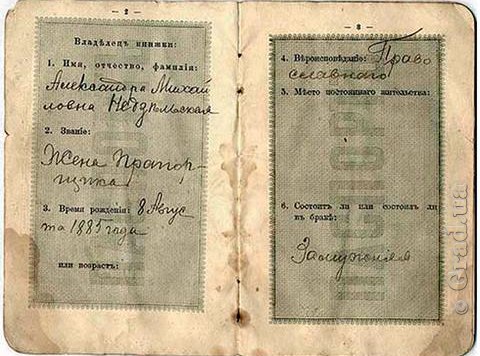 — 2 —
Владѣлецъ книжки:
1. Имя, отчество, фамилія:
Александра Михай
ловна Недзѣльская
2. Званіе:
Жена Прапор-
щика
3. Время рожденія: 8 Авгус
та 1885 года
или возрастъ:
— 3 —
4. Вѣроисповѣданіе: Право
славнаго
5. Мѣсто постояннаго жительства:
6. Состоитъ ли или состоялъ ли
въ бракѣ:
Замужняя
© Grad.ua